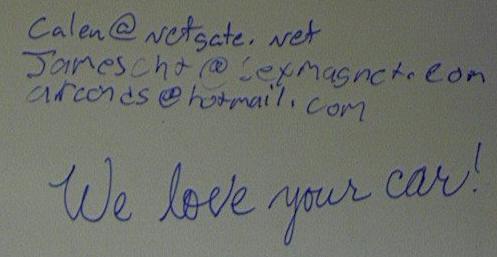 Calen@netgate.net
Jamescht@sexmagnet.com
@hotmail.com
We love your car!